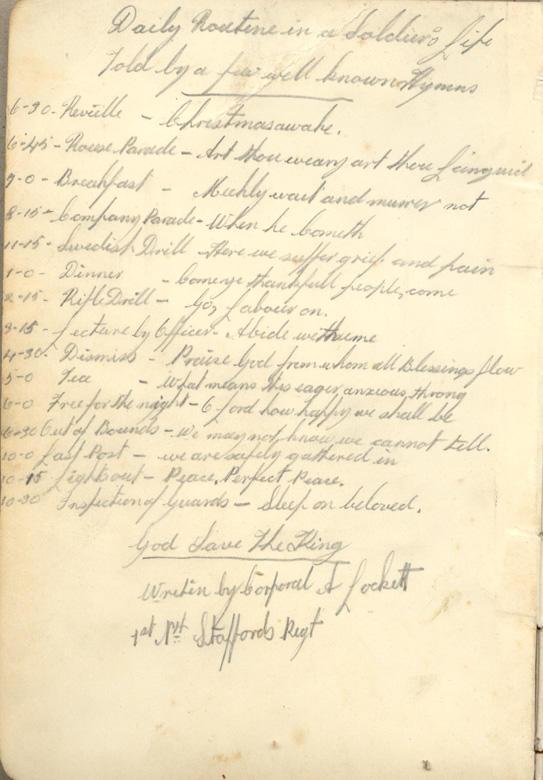 Daily Routine in a Soldiers Life
Told by a few well known Hymns
6-30- Reveille - Christmas awake.
6-45- Rouse Parade - Art thou weary art thou Languid
9-0- Breakfast - Meekly wait and murmer not
8-15- Company Parade - When he Cometh
11-15- Swedish Drill - Here we suffer grief and pain
1-0- Dinner - Come ye thankfull people, come
2-15- Rifle Drill - Go, Labour on.
3-15- Lecture by Officer - Abide with me
4-30- Dismiss - Praise God from whom all Blessings flow
5-0 Tea - What means this eager, anxious, throng
6-0 Free for the night - O Lord how happy we shall be
6-30 Out of Bounds - We may not know, we cannot tell.
10-0 Last Post - we are safely gathered in
10-15 Lights out - Peace, Perfect Peace.
10-30 Inspection of Guards - Sleep on beloved.
God Save The King
Written by Corporal A Lockett
1st Nth Staffords Regt